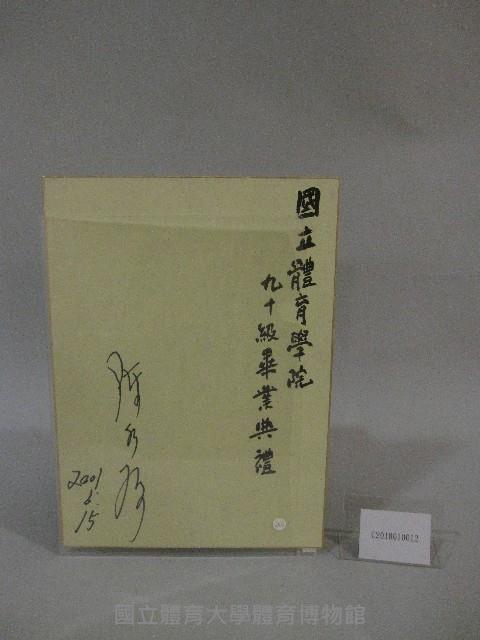 國立體育學院
九十級畢業典禮
陳水扁
2001
6.15
C2018010012
國立體育大學體育博物館